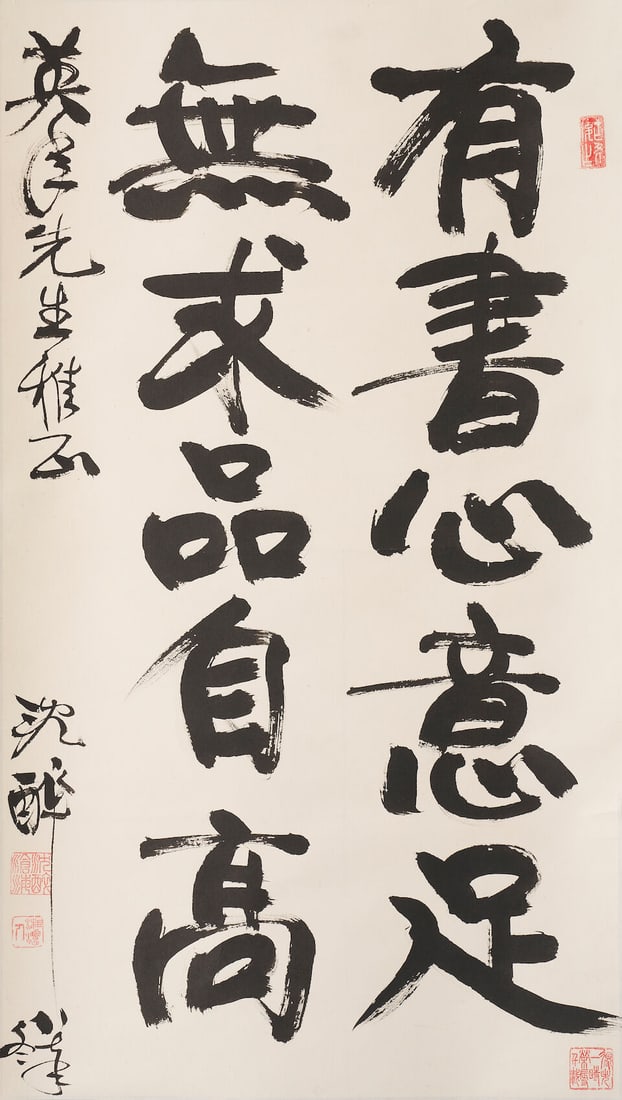 有書心意足
無求品自高
英先生雅正
沈醉